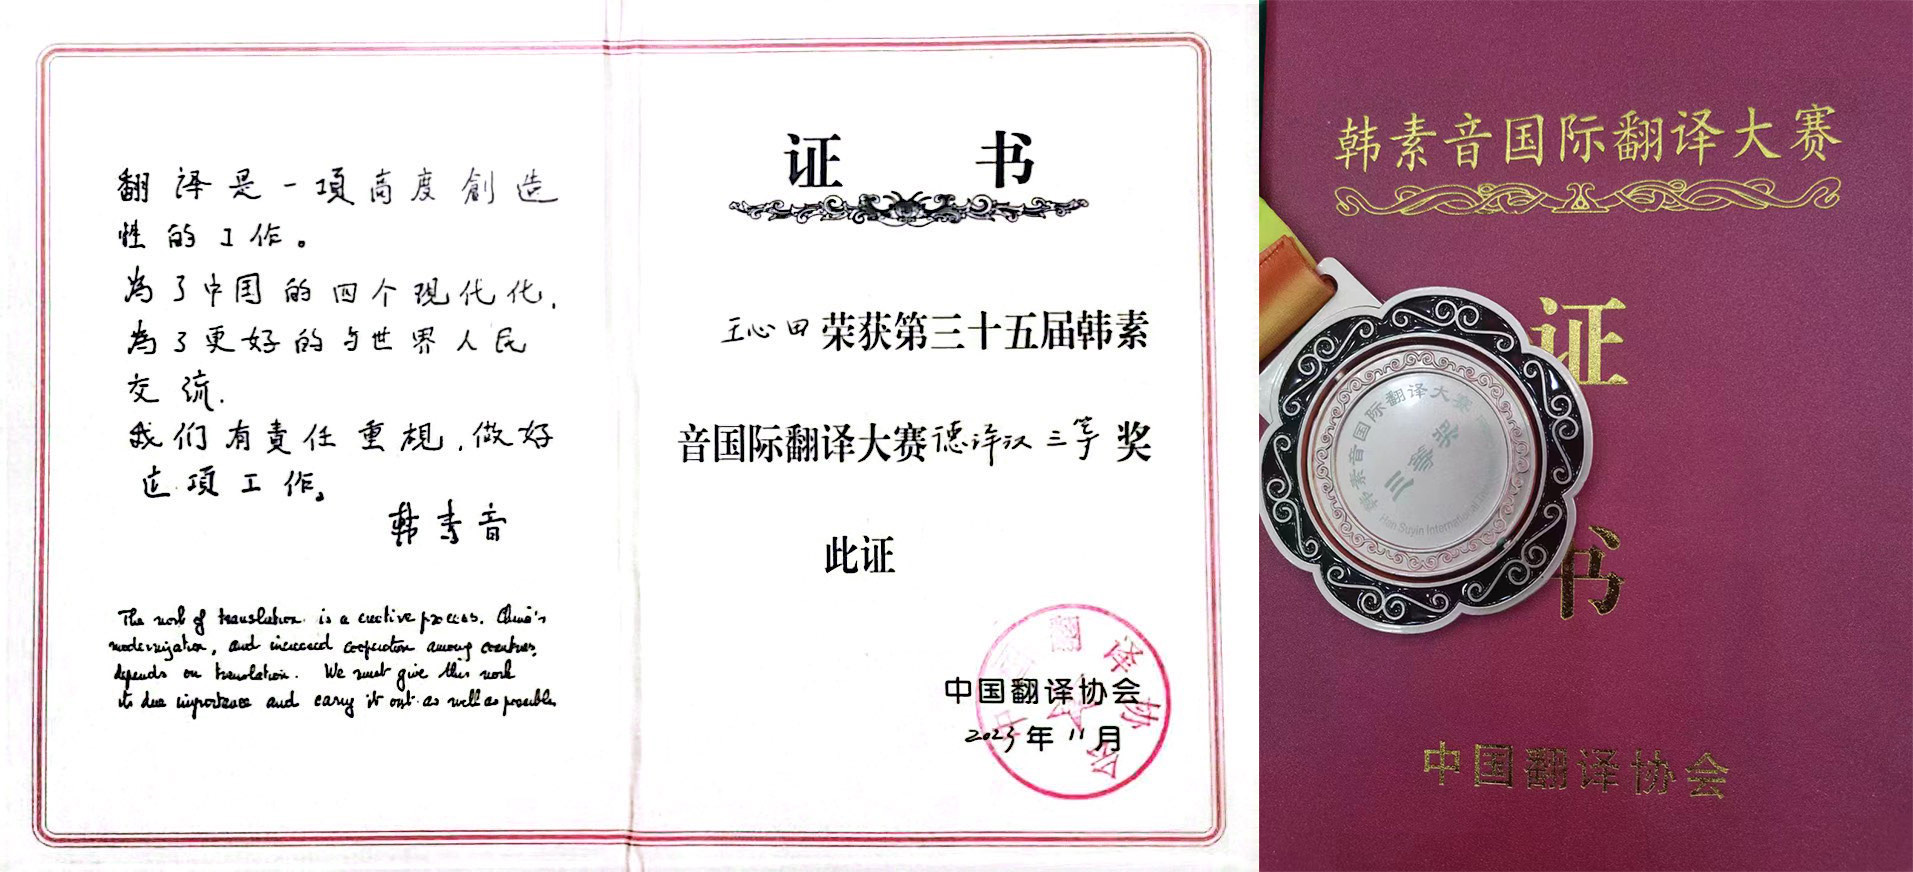 翻译是一項高度創造
性的工作。
為了中国的四个现代化，
為了更好的与世界人民
交流，
我们有責任重視，做好
这項工作。
韩素音
The work of translation is a creative process. China's
modernization, and increased cooperation among countries,
depends on translation. We must give this work
its due importance and carry it out as well as possible.
证书
王心田荣获第三十五届韩素
音国际翻译大赛德译汉三等奖
此证
中国翻译协会
中国翻译协会
2023年11月
韩素音国际翻译大赛
证
书
中国翻译协会
韩素音国际翻译大赛
三等奖
Han Suyin International